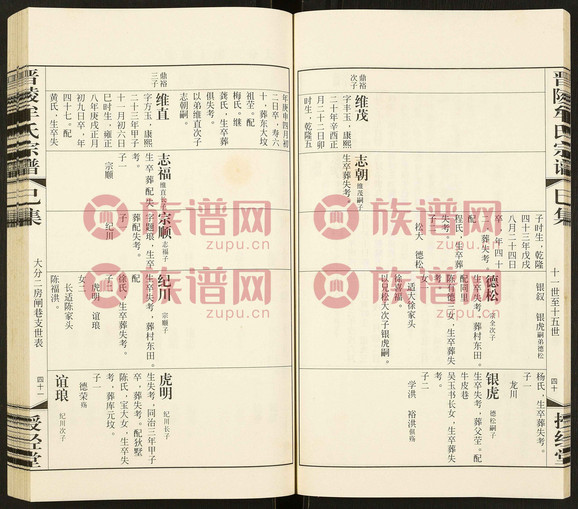 晋陵牟氏宗谱
巳集
十一世至十五世
四十
授经堂
子时生，乾隆
四十三年戊戌
八月二十四日
卒，年四十
二，葬失考。
程氏，生卒葬
失考。
子一
松大 德松
维茂
鼎裕次子
字丰玉，康熙
二十年辛酉正
月二十二日卯
时生，乾隆五
年庚申四月初
二日卒，寿六
十，葬东大坟
祖茔。配
梅氏。继
龚氏，生卒葬
俱失考。
以弟维直次子
志朝嗣。
志朝
维茂嗣子
生卒葬失考。
银叙 银虎嗣弟德松
德松
宗全次子
生卒失考，葬
配同里
陈有德三女，生卒葬失
考。
女一
适大徐家头
徐喜福。
以兄松大次子银虎嗣。
杨氏，生卒葬失考。
子一
龙川
银虎
德松嗣子
生卒失考，葬父茔。配
牛皮巷
吴玉书长女，生卒葬失
考。
子二
学洪 裕洪
维直
鼎裕三子
字方玉，康熙
二十三年甲子
十一月初六日
巳时生，雍正
八年庚戌正月
初九日卒，年
四十七。配
黄氏，生卒失
志福
维直长子
生卒葬配失
考。
子一
宗顺
宗顺
志福子
字题琅，生卒
葬配失考。
子一
纪川
纪川
宗顺子
生卒失考，葬村东田。
配
徐氏，生卒葬失考。
子二
虎明 谊琅
女二
长适陈家头
陈福洪。
虎明
纪川长子
生失考，同治三年甲子
卒，葬失考。配狄墅
陈氏，宝大女，生卒失
考，葬库元坟。
子一
德荣殇
谊琅
纪川次子
晋陵牟氏宗谱
巳集
大分二房闸巷支世表
四十一
授经堂
族谱网
zupu.cn
族谱网
zupu.cn
族谱网
zupu.cn
族谱网
zupu.cn